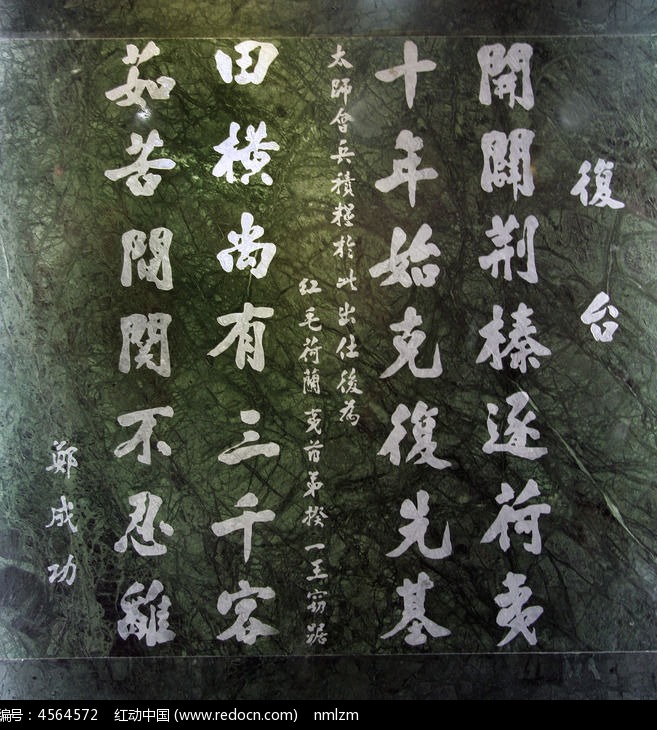 復台
開闢荆榛逐荷夷
十年始克復先基
太師會兵積糧於此出仕後為
紅毛荷蘭夷酋弟揆一王竊踞
田横尚有三千客
茹苦間関不忍離
鄭成功
编号：4564572 红动中国 (www.redocn.com) nmlzm